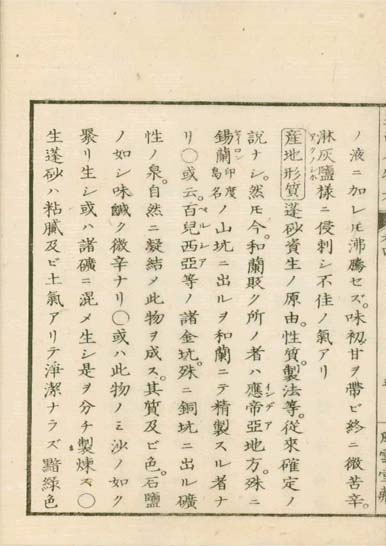 ノ液ニ加レヒ沸騰セズ。味初甘ヲ帶ビ終ニ微苦辛。
淋灰鹽様ニ侵刺シ不佳ノ氣アリ
アクノシホ
産地形質 蓬砂資生ノ原由。性質。製法等。從來確定ノ
説ナシ。然モ。今和蘭取ク所ノ者ハ應帝亞地方。殊ニ
インデア
錫蘭印度島名ノ山坑ニ出ルヲ和蘭ニテ精製スル者ナ
セイロン
リ〇或云。百兒西亞等ノ諸金坑。殊ニ銅坑ニ出ル礦
ペルシア
性ノ泉。自然ニ凝結メ此物ヲ成ス。其質及ビ色。石鹽
ノ如シ味鹹ク微辛ナリ〇或ハ此物ノミ沙ノ如ク
聚リ生シ或ハ諸礦ニ混メ生シ是ヲ分チ製煉ス〇
生蓬砂ハ粘膩及ビ土氣アリテ淨潔ナラズ黯綠色